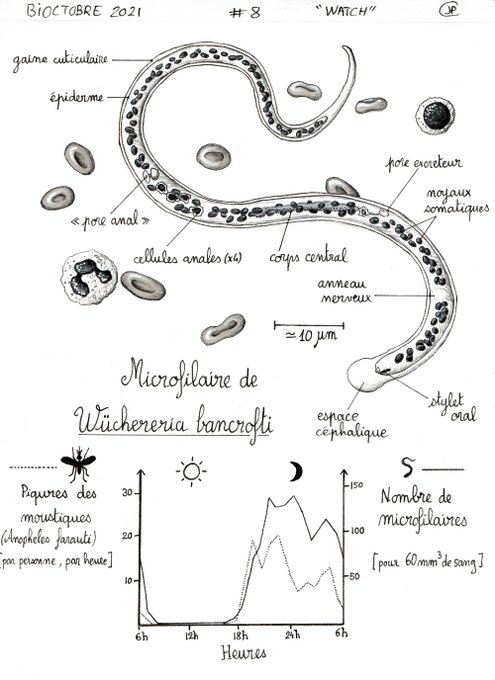 BiOCTOBRE 2021
#8
"WATCH"
JP
gaine cuticulaire
épiderme
pore excreteur
noyaux
somatiques
« pore anal »
cellules anales (x4)
corps central
anneau
nerveux
≃ 10 µm
Microfilaire de
Wüchereria bancrofti
espace
céphalique
stylet
oral
Piqûres des
moustiques
(Anopheles farauti)
[par personne, par heure]
30
20
10
150
100
50
Nombre de
microfilaires
[pour 60 mm³ de sang]
6h
12h
18h
24h
6h
Heures